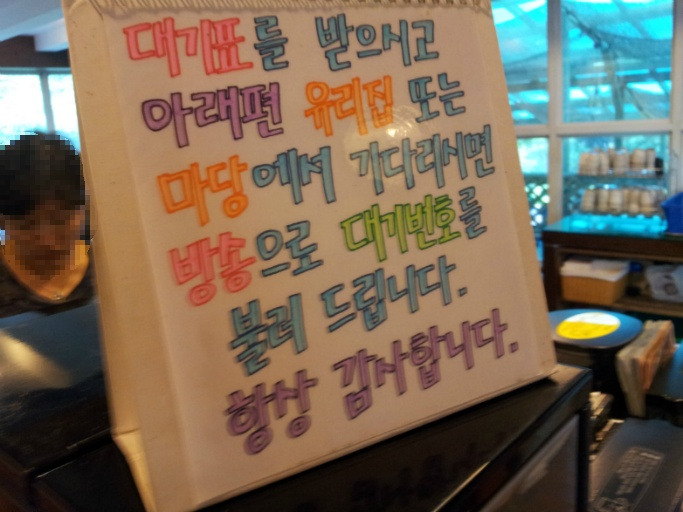 대기표를 받으시고
아래편 유리집 또는
마당에서 기다리시면
방송으로 대기번호를
불러 드립니다.
항상 감사합니다.